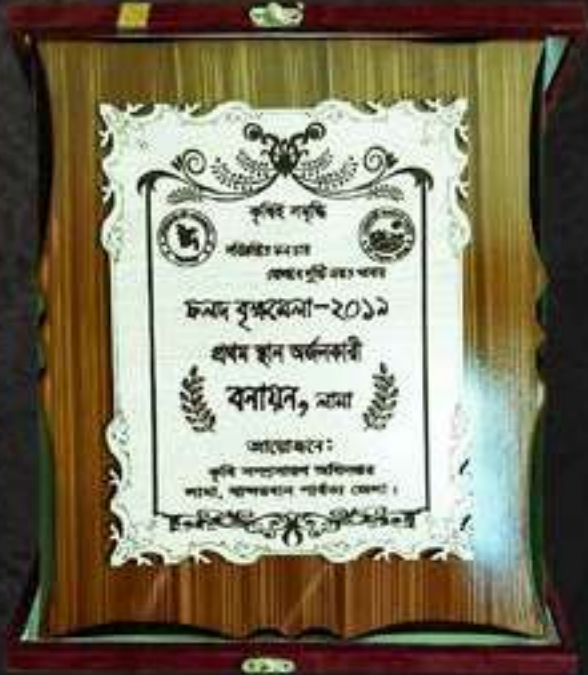 কৃষিই সমৃদ্ধি
ফলদ বৃক্ষমেলা-২০১৯
প্রথম স্থান অর্জনকারী
বনায়ন, লামা
আয়োজনে:
কৃষি সম্প্রসারণ অধিদপ্তর
লামা, বান্দরবান পার্বত্য জেলা।